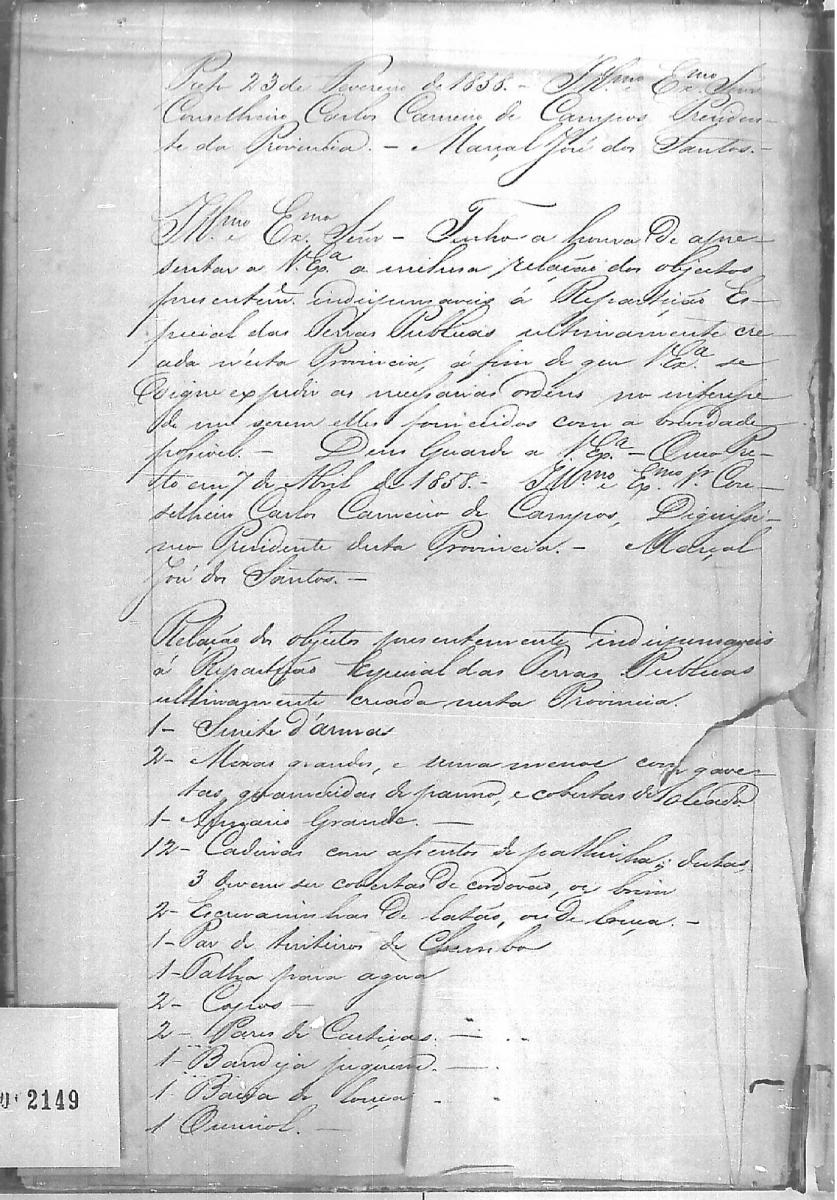 Preto 23 de Fevereiro de 1858. - Ill.mo e Ex.mo Senr
Conselheiro Carlos Carneiro de Campos Presiden-
te da Provincia. - Marçal José dos Santos. -
Ill.mo e Ex.mo Senr - Tenho a honra de apre-
sentar a V. Ex.a a inclusa relação dos objectos
presentem. indispensaveis á Repartição Es-
pecial das Terras Publicas ultimamente cre-
ada n'esta Provincia, á fim de que V. Ex.a se
digne expedir as necessarias ordens no
de me serem elles fornecidos com a brevidade
possivel. - Deus Guarde a V. Ex.a - Ouro Pre-
to em 7 de Abril de 1858. - Ill.mo e Ex.mo Sr. Con-
selheiro Carlos Carneiro de Campos, Dignissi-
mo Presidente desta Provincia. - Marçal
José dos Santos. -
Relação dos objectos presentemente indispensaveis
á Repartição Especial das Terras Publicas
ultimamente creada nesta Provincia.
1 - Sinete d'armas
2 - Mezas grandes, e uma menor com gave-
tas, guarnecidas de panno, e cobertas de oleado
1 - Armario Grande. -
12 - Cadeiras com assentos de palhinha; destas,
3 devem ser cobertas de cordovão, ou
2 - Escrivaninhas de latão, ou de louça. -
1 - Par de tinteiros de Chumbo
1 - Talha para agua
2 - Copos -
2 - Pares de Castiçaes. -
1 - Bandeja pequena. -
1 Bacia de louça -
1 Ourinol. -
2149